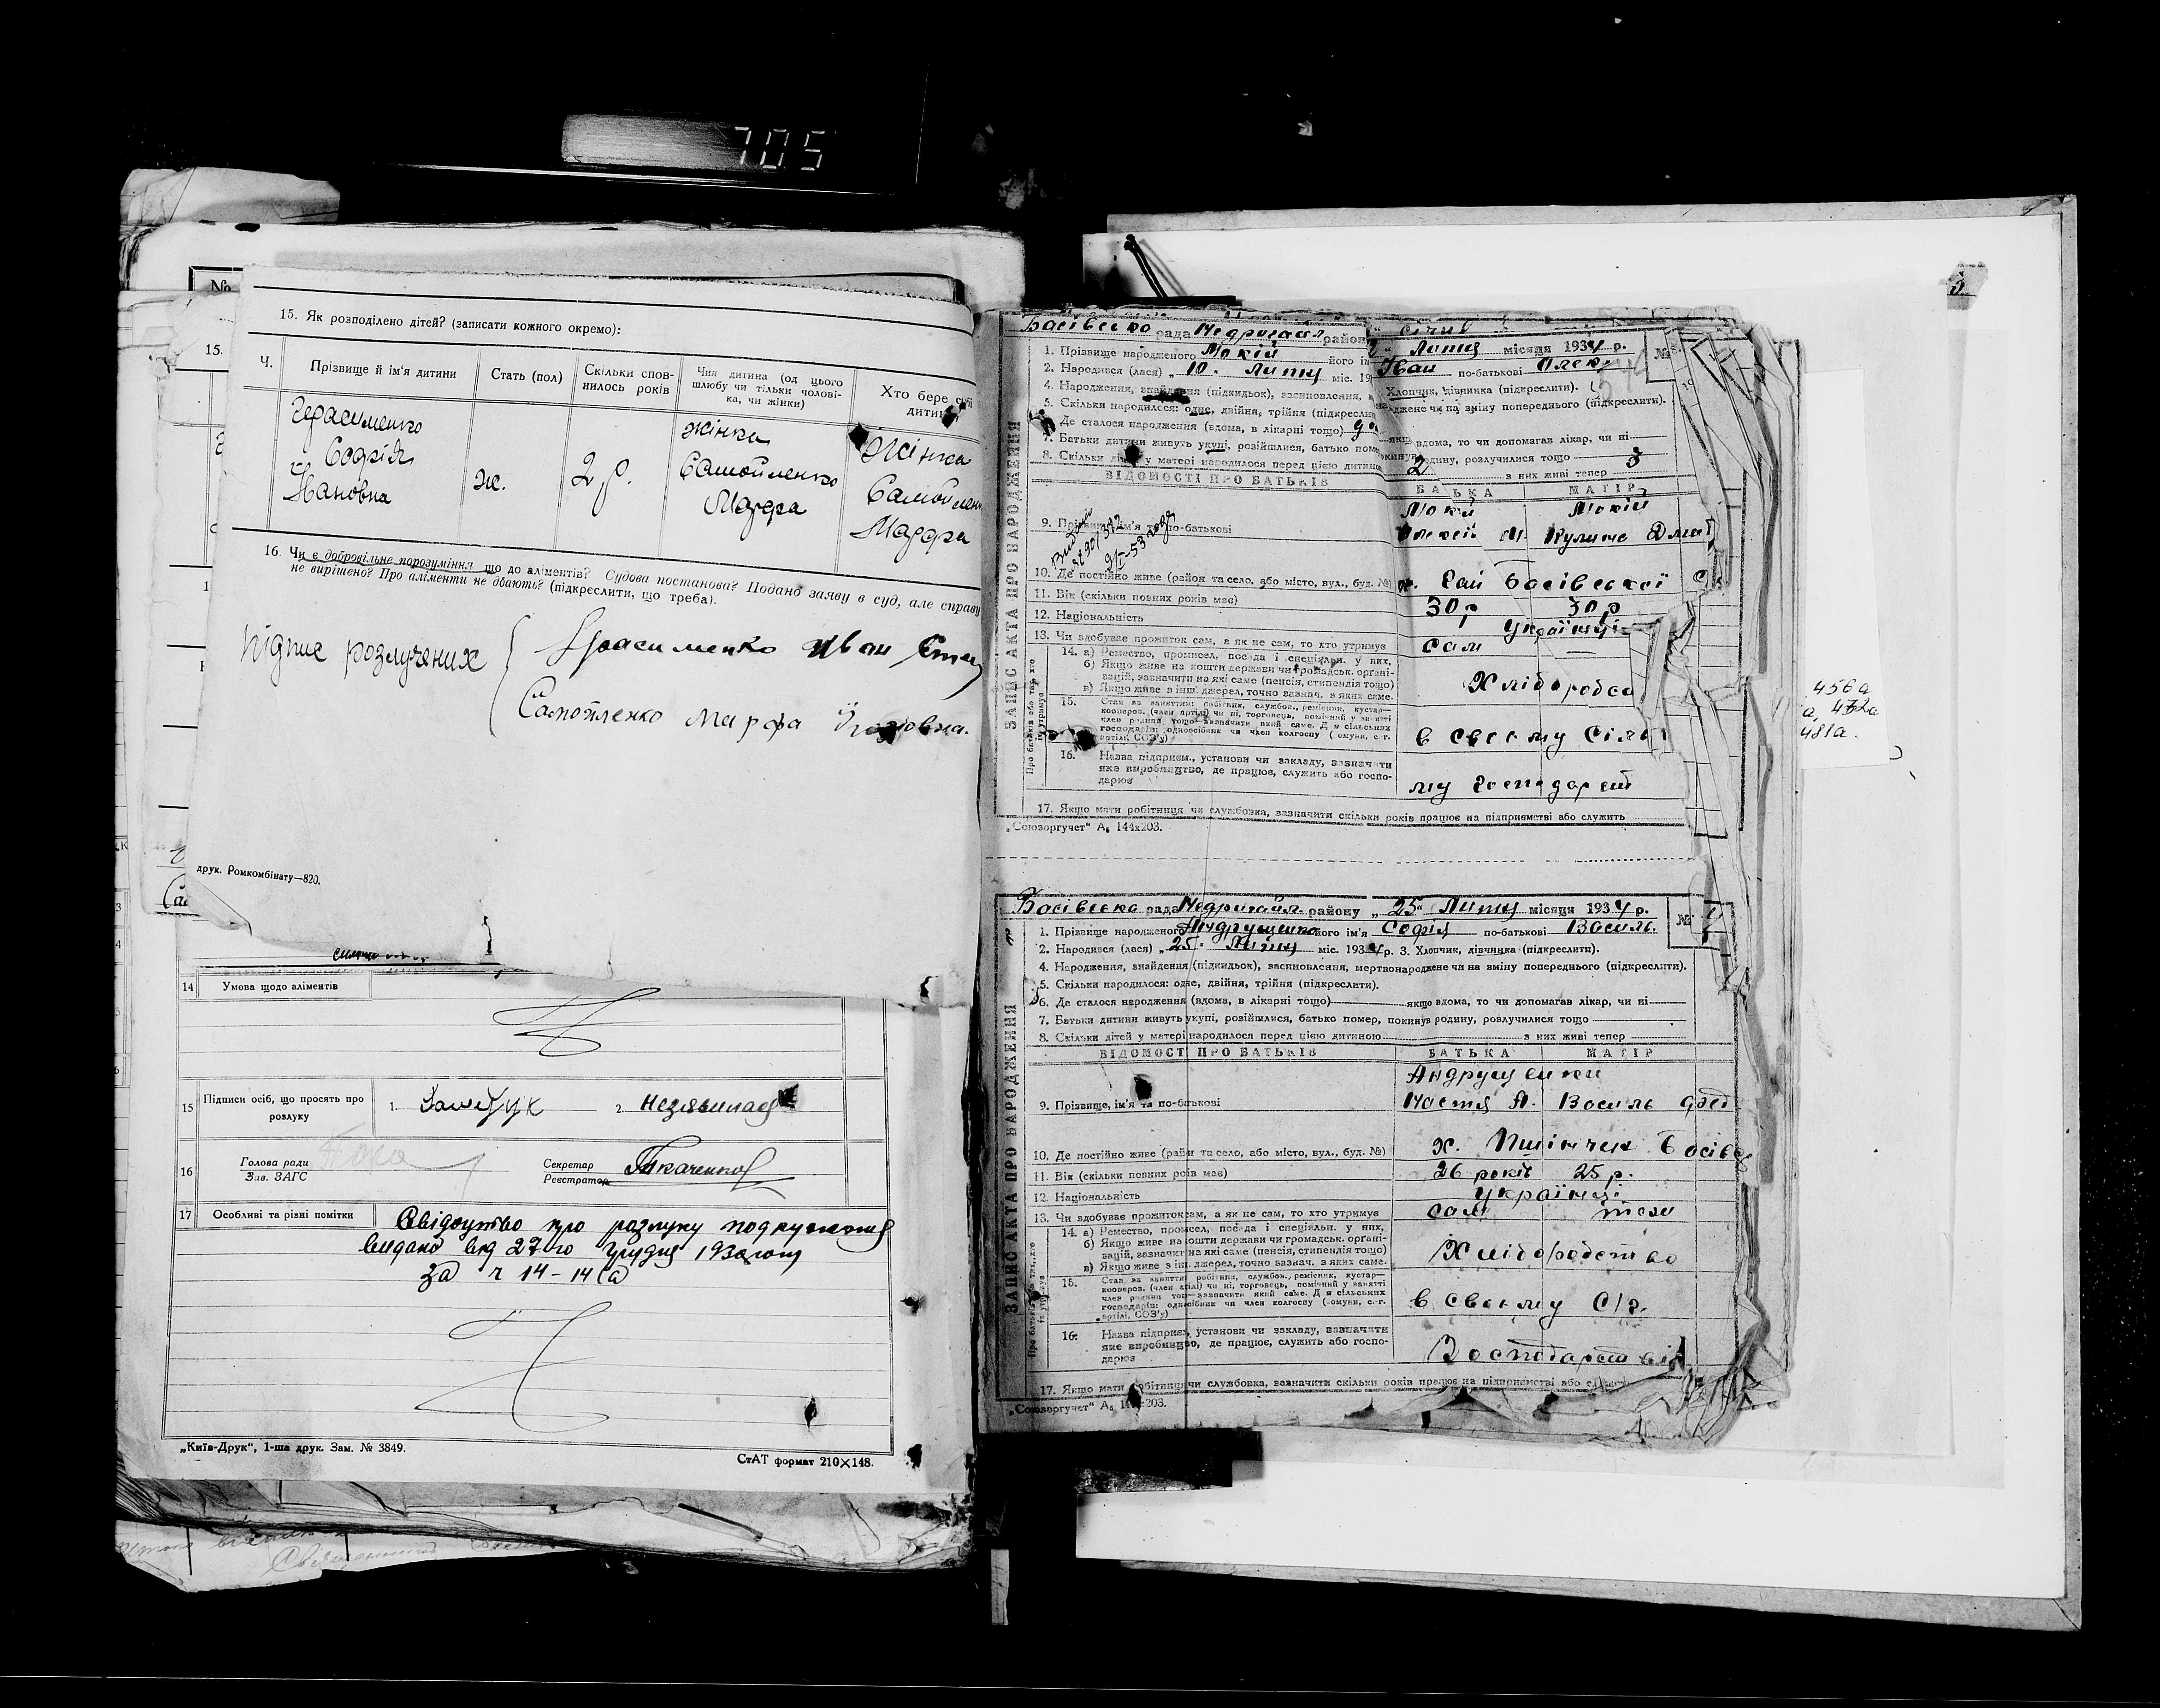 705
№
15.
15. Як розподілено дітей? (записати кожного окремо):
Ч. Прізвище й ім'я дитини Стать (пол) Скільки спов-нилось років Чия дитина (од цього шлюбу чи тільки чолові-ка, чи жінки) Хто бере собі дитину
Герасименко жінка Жінка
Софія ж. 2 р. Самойленко Самойлен
Ивановна Марфа Марфа
16. Чи є добровільне порозуміння що до аліментів? Судова постанова? Подано заяву в суд, але справу
не вирішено? Про аліменти не дбають? (підкреслити, що треба).
Підпис розлучених Герасименко Иван
Самойленко Марфа
друк. Ромкомбінату—820.
14 Умова щодо аліментів
15 Підписи осіб, що просять про розлуку 1. 2. Незявилася
16 Голова ради
Зав. ЗАГС
Секретар Ткаченко
Реєстратор
17 Особливі та різні помітки Свідоцтво про розлуку подружжя
видано від 27-го грудня 193
за ч 14-14
„Київ-Друк“, 1-ша друк. Зам. № 3849.
СтАТ формат 210×148.
3
Басівська рада Недригайл район Лютня місяця 1934 р. №
ЗАПИС АКТА ПРО НАРОДЖЕННЯ
1. Прізвище народженого Мокій його ім Іван по-батькові Олек
2. Народився (лася) „10. Лютня міс. 19 Хлопчик, дівчинка (підкреслити).
4. Народження, знайдення (підкидьок), засиновлення, народжене чи на зміну попереднього (підкреслити).
5. Скільки народилося: одне, двійня, трійня (підкреслити
6. Де сталося народження (вдома, в лікарні тощо) якщо вдома, то чи допомагав лікар, чи ні
7. Батьки дитини живуть укупі, розійшлися, батько пом покинув родину, розлучилися тощо
8. Скільки дітей у матері народилося перед цією дитиною 2 з них живі тепер 3
ВІДОМОСТІ ПРО БАТЬКІВ БАТЬКА МАТІР
Мокій Мокій
9. Прізвище, ім'я та по-батькові Олексій М. Кулина Дмит
10. Де постійно живе (район та село, або місто, вул., буд. №) х. Гай Басівської
11. Вік (скільки повних років має) 30 р 30 р
12. Національність Українці
13. Чи здобуває прожиток сам, а як не сам, то хто утримує сам —
14. а) Ремество, промисел, посада і спеціяльн. у них,
б) Якщо живе на кошти держави чи громадськ. органі-
зацій, зазначити на які саме (пенсія, стипендія тощо)
в) Якщо живе з інш. джерел, точно зазнач. з яких саме.
Хлібороб
15. Стан за заняттям: робітник, службов., ремісник, кустар—
кооперов. (член артілі) чи ні, торговець, помічний у занятті
член родини тощо—зазначити який саме. Для сільських
господарів: одноосібник чи член колгоспу (комуни, с.-г.
артілі, СОЗ'у)
в своєму Сіль
16. Назва підприєм., установи чи закладу, зазначити
яке виробництво, де працює, служить або госпо-
дарює
му господарст
17. Якщо мати робітниця чи службовка, зазначити скільки років працює на підприємстві або служить
„Союзоргучет“ А₆ 144х203.
456а
а, 472а
481а.
Басівська рада Недригайл. району „25“ Лютня місяця 1934 р. № 4
ЗАПИС АКТА ПРО НАРОДЖЕННЯ
1. Прізвище народженого Андрущенко його ім'я Софія по-батькові Василь.
2. Народився (лася) „25. Лютня міс. 1934 р. 3. Хлопчик, дівчинка (підкреслити).
4. Народження, знайдення (підкидьок), засиновлення, мертвонароджене чи на зміну попереднього (підкреслити).
5. Скільки народилося: одне, двійня, трійня (підкреслити).
6. Де сталося народження (вдома, в лікарні тощо) якщо вдома, то чи допомагав лікар, чи ні
7. Батьки дитини живуть укупі, розійшлися, батько помер, покинув родину, розлучилися тощо
8. Скільки дітей у матері народилося перед цією дитиною з них живі тепер
ВІДОМОСТІ ПРО БАТЬКІВ БАТЬКА МАТІР
Андрущенки
9. Прізвище, ім'я та по-батькові Настя А. Василь Фед
10. Де постійно живе (район та село, або місто, вул., буд. №) х. Басів
11. Вік (скільки повних років має) 26 років 25 р.
12. Національність Українці
13. Чи здобуває прожиток сам, а як не сам, то хто утримує сам теж
14. а) Ремество, промисел, посада і спеціяльн. у них,
б) Якщо живе на кошти держави чи громадськ. органі-
зацій, зазначити на які саме (пенсія, стипендія тощо)
в) Якщо живе з інш. джерел, точно зазнач. з яких саме.
Хліборобство
15. Стан за заняттям: робітник, службов., ремісник, кустар—
кооперов. (член артілі) чи ні, торговець, помічний у занятті
член родини тощо—зазначити який саме. Для сільських
господарів: одноосібник чи член колгоспу (комуни, с.-г.
артілі, СОЗ'у)
в своєму С/г.
16. Назва підприєм., установи чи закладу, зазначити
яке виробництво, де працює, служить або госпо-
дарює
Господарстві
17. Якщо мати робітниця чи службовка, зазначити скільки років працює на підприємстві або
„Союзоргучет“ А₆ 144х203.